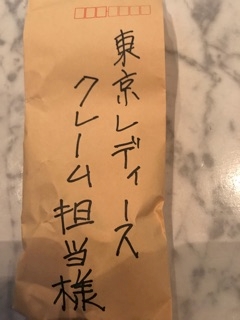 東京レディース
クレーム担当様